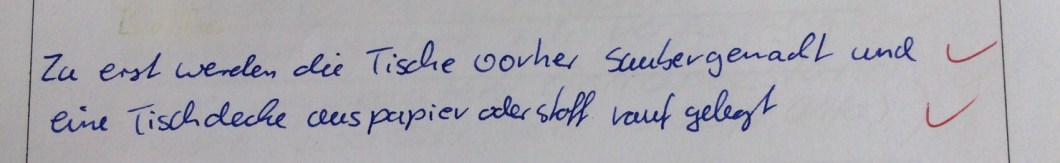 Zu erst werden die Tische vorher saubergemacht und
eine Tischdecke aus papier oder stoff rauf gelegt